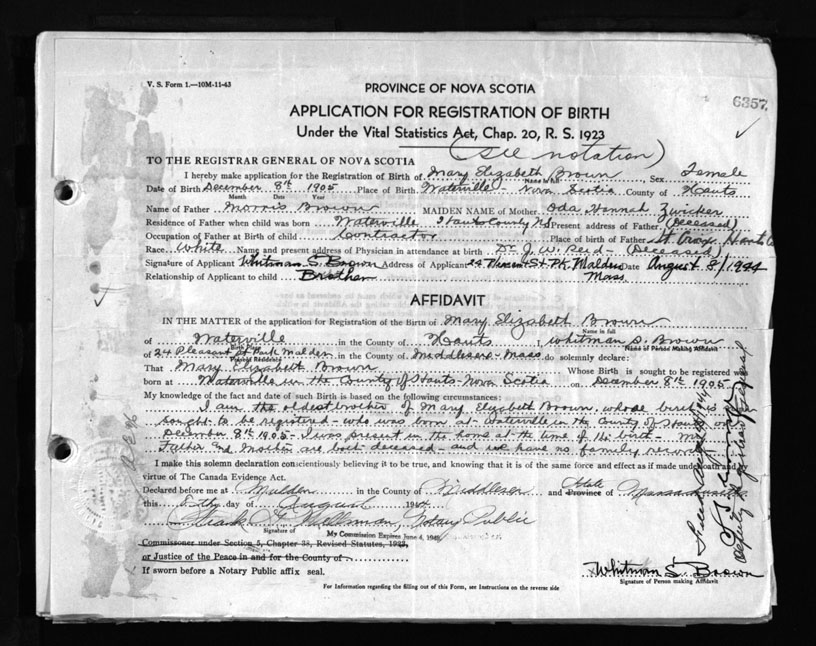 V. S. Form 1.—10M-11-43
PROVINCE OF NOVA SCOTIA
6357
APPLICATION FOR REGISTRATION OF BIRTH
Under the Vital Statistics Act, Chap. 20, R. S. 1923
(see notation)
TO THE REGISTRAR GENERAL OF NOVA SCOTIA
I hereby make application for the Registration of Birth of Mary Elizabeth Brown, Sex Female
Name in full
Date of Birth December 8th 1905 Place of Birth Waterville - Nova Scotia County of Hants
Month Date Year
Name of Father Morris Brown MAIDEN NAME of Mother Oda Hannah Zwicker
Residence of Father when child was born Waterville Hants County NS Present address of Father (Deceased)
Occupation of Father at Birth of child Contractor Place of birth of Father St. Croix Hants Co
Race White Name and present address of Physician in attendance at birth Dr. J. W. Reid - (Deceased)
Signature of Applicant Whitman S. Brown Address of Applicant 24 Pleasant St Pk. Malden Date August 8/1944
Relationship of Applicant to child Brother Mass
AFFIDAVIT
IN THE MATTER of the application for Registration of the Birth of Mary Elizabeth Brown
Name in full
of Waterville in the County of Hants I, Whitman S. Brown
Birth Place Name of Person Making Affidavit
of 24 Pleasant St Park Malden in the County of Middlesex - Mass do solemnly declare:
Present Residence
That Mary Elizabeth Brown Whose Birth is sought to be registered was
born at Waterville in the County of Hants - Nova Scotia on December 8th 1905
My knowledge of the fact and date of such Birth is based on the following circumstances:
I am the oldest brother of Mary Elizabeth Brown, whose birth is
sought to be registered - who was born at Waterville in the County of Hants on
December 8th 1905 - I was present in the home at the time of the birth - My
Father and Mother are both deceased - and we have no family record
I make this solemn declaration conscientiously believing it to be true, and knowing that it is of the same force and effect as if made under oath and by
virtue of The Canada Evidence Act.
Declared before me at Malden in the County of Middlesex and Province State of Massachusetts
this 8th day of August 1944
Notary Public
Signature of My Commission Expires June 4, 1948
Commissioner under Section 5, Chapter 38, Revised Statutes, 1923,
or Justice of the Peace in and for the County of
If sworn before a Notary Public affix seal.
Whitman S. Brown
Signature of Person making Affidavit
For Information regarding the filling out of this Form, see Instructions on the reverse side
Deputy Registrar General